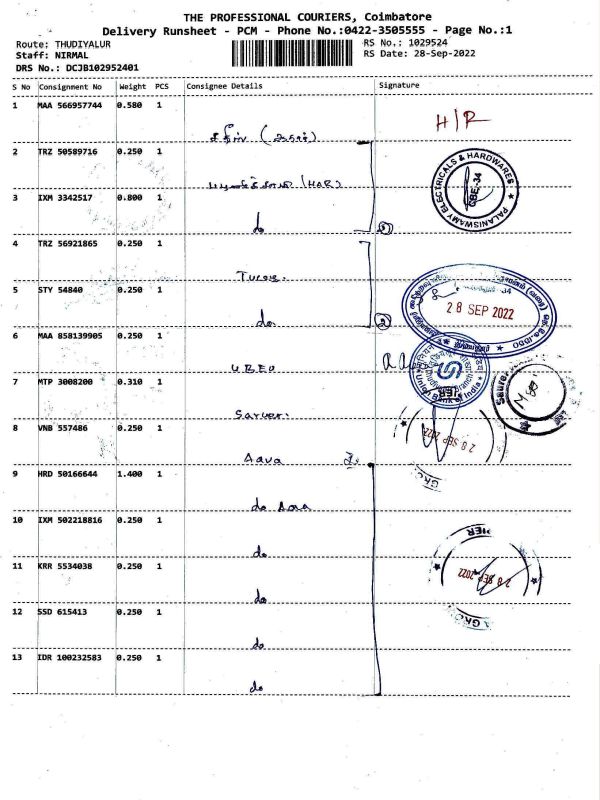 THE PROFESSIONAL COURIERS, Coimbatore
Delivery Runsheet - PCM - Phone No.:0422-3505555 - Page No.:1
Route: THUDIYALUR
RS No.: 1029524
Staff: NIRMAL
RS Date: 28-Sep-2022
DRS No.: DCJB102952401
S No Consignment No Weight PCS Consignee Details Signature
1 MAA 566957744 0.580 1
H/R
2 TRZ 50589716 0.250 1
(H&R)
PALANISWAMY ELECTRICALS & HARDWARES
CBE-34
3 IXM 3342517 0.800 1
do
4 TRZ 56921865 0.250 1
5 STY 54840 0.250 1
do
28 SEP 2022
6 MAA 858139905 0.250 1
Union Bank of India
7 MTP 3008200 0.310 1
Sarver.
8 VNB 557486 0.250 1
28 SEP 2022
Aava
9 HRD 50166644 1.400 1
do Aava
10 IXM 502218816 0.250 1
do
11 KRR 5534038 0.250 1
28 SEP 2022
do
12 SSD 615413 0.250 1
do
13 IDR 100232583 0.250 1
do